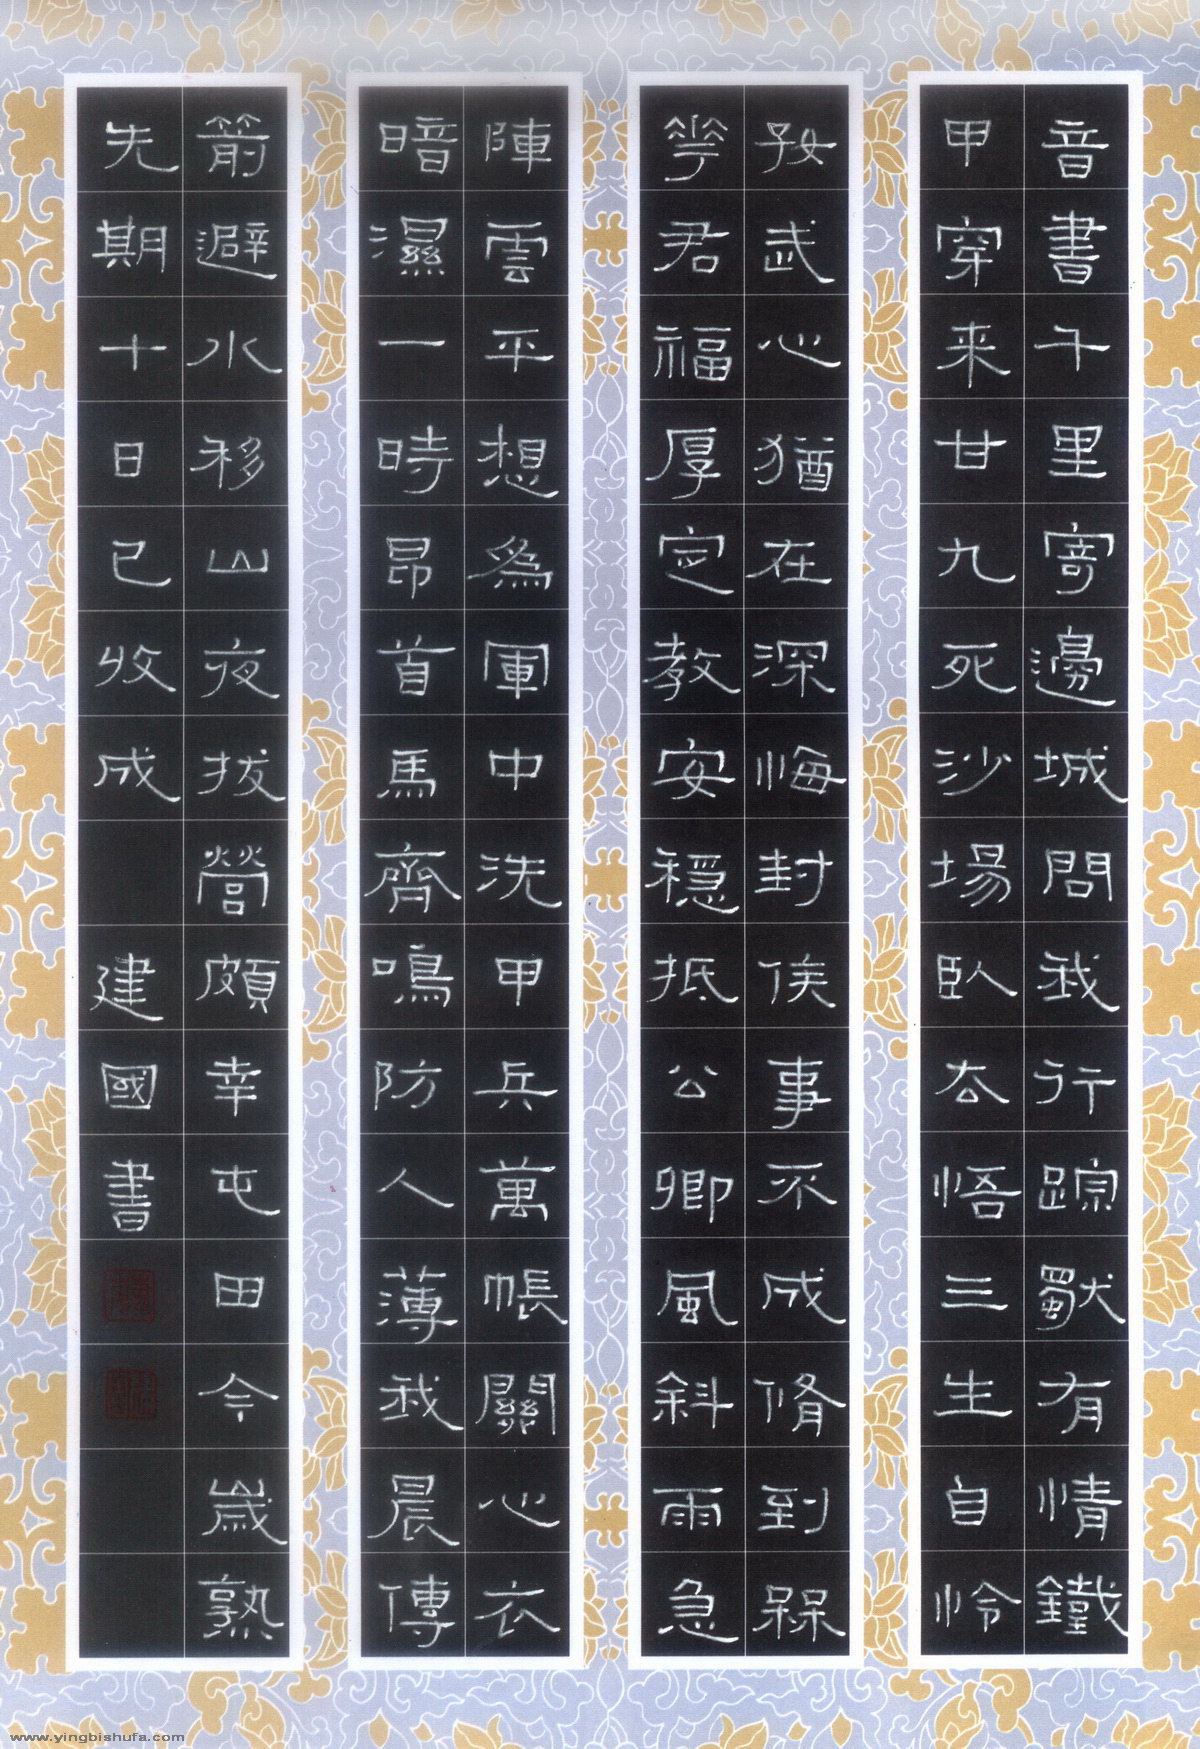 音書千里寄邊城問我行踪獸有情鐵
甲穿来甘九死沙場臥太悟三生自怜
孜武心猶在深悔封侯事不成脩到槑
華君福厚定教安穩抵公卿風斜雨急
陣雲平想為軍中洗甲兵萬帳關心衣
暗濕一時昂首馬齊鳴防人薄我晨傳
箭避水移山夜拔營頗幸屯田今歲熟
先期十日已收成 建國書
www.yingbishufa.com